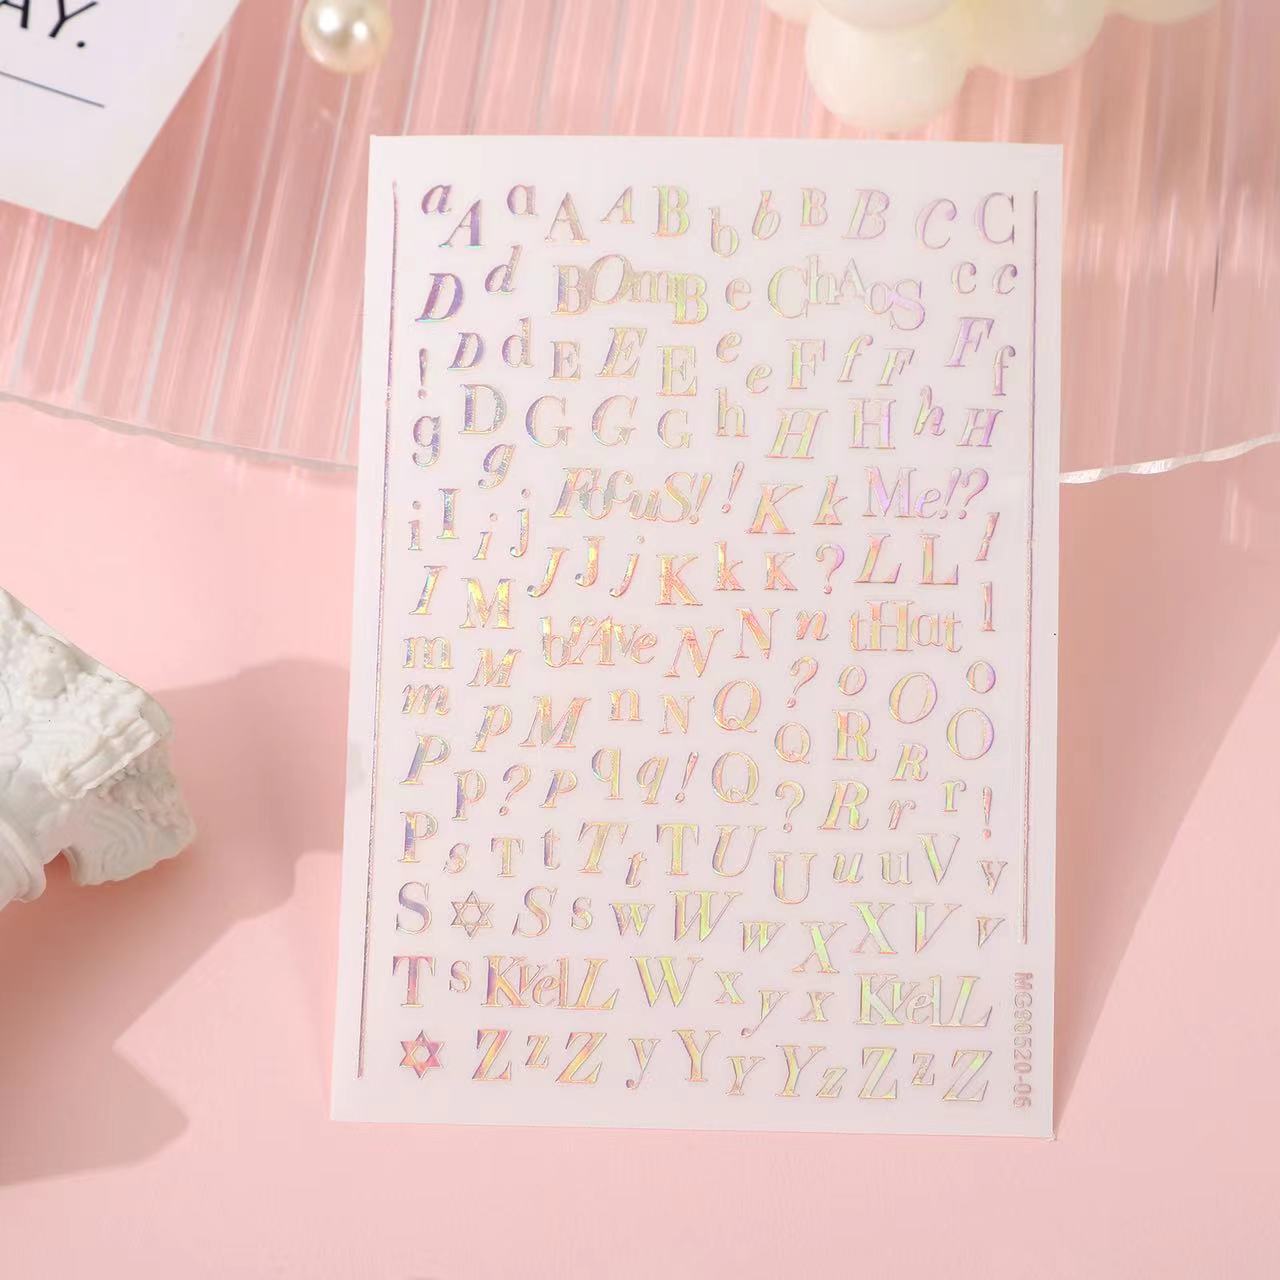 AY.
a A a A A B b b B B C C
D d BOmB e ChAoS c c
! D d E E E e e F f F F f
g D g G G G h H H h H
i I i j FOcuS! ! K k Me!? !
I M J J j K k K ? L L l
m M brAve N N n tHat
m p M n N Q ? o O o
P p ? P q q ! Q Q R R O
P s T t T t T U ? R r r !
S S s w W w U u u V v
T s KvelL W x y X X V v
Z z Z y Y Y x KvelL
Y z Z z Z
MG90520-06